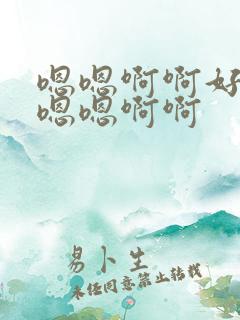 嗯嗯啊啊好
嗯嗯啊啊
易卜生
未经同意禁止转载